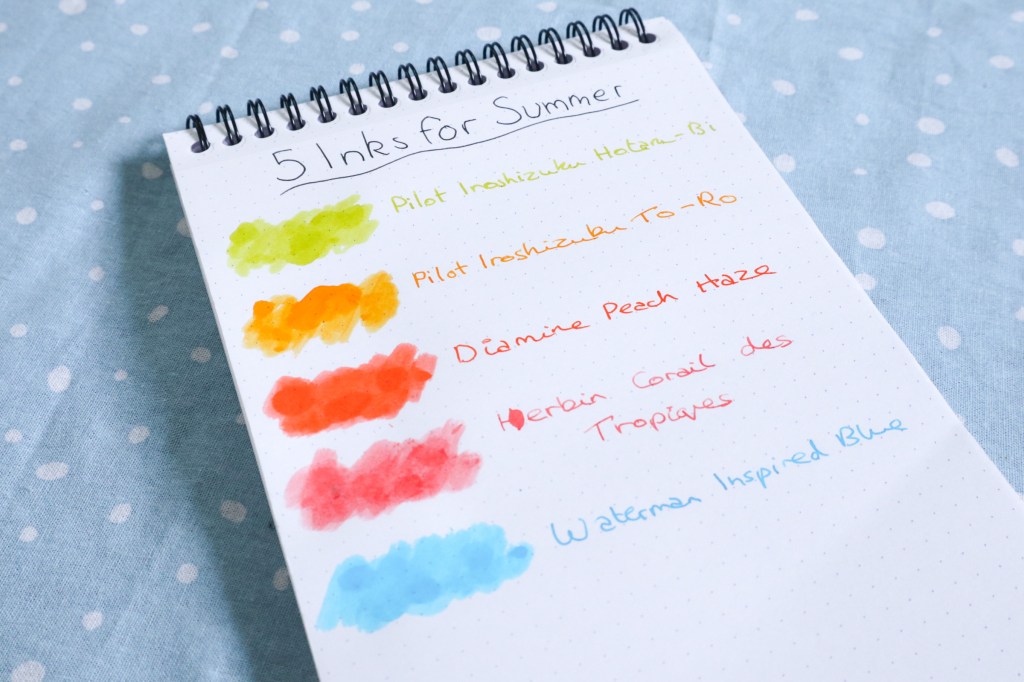 5 Inks for Summer
Pilot Iroshizuku Hotaru-Bi
Pilot Iroshizuku To-Ro
Diamine Peach Haze
Herbin Corail des
Tropiques
Waterman Inspired Blue